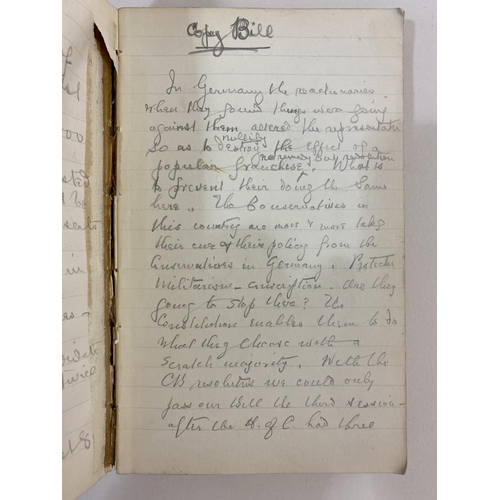 Copy Bill
In Germany the reactionaries
when they found things were going
against them altered the representatn
nullify
so as to destroy the effect of a
narrowly but revolution
popular franchise. What is
to prevent their doing the same
here. The Conservatives in
this country are more & more taking
their cue & their policy from the
Conservatives in Germany. Protectn
Militarism - conscription. Are they
going to stop there? The
Constitution enables them to do
what they choose with a
scratch majority. With the
CB resolution we could only
pass our will the third session
after the H. of C. had three